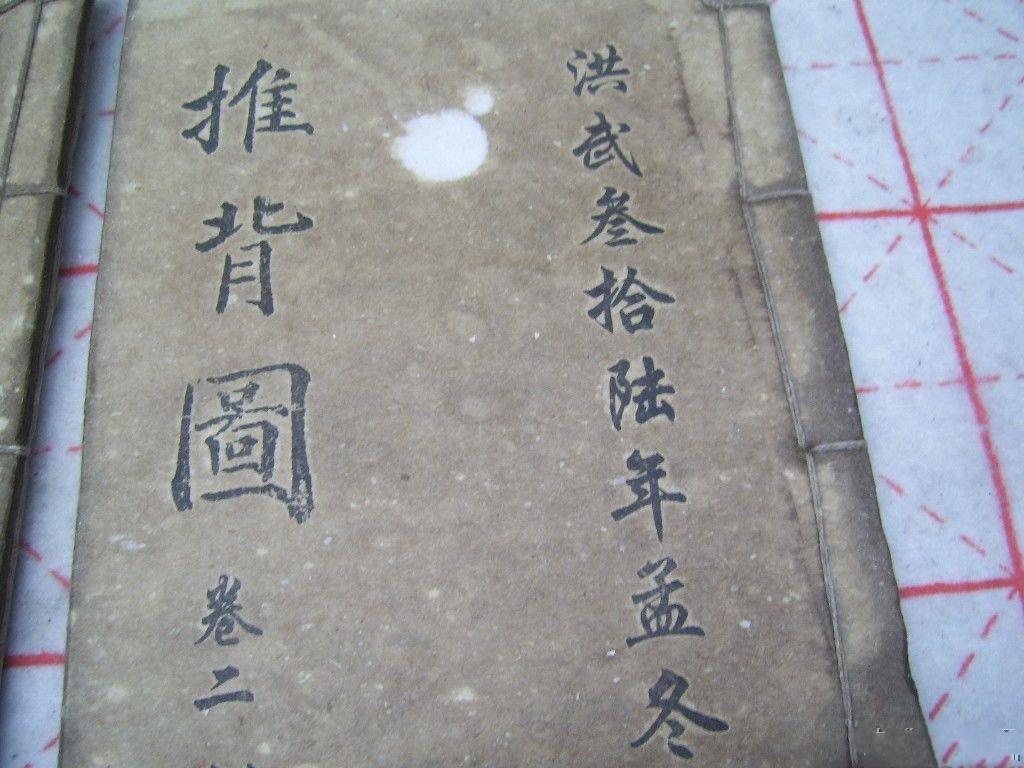 洪武叁拾陆年孟冬
推背圖 卷二